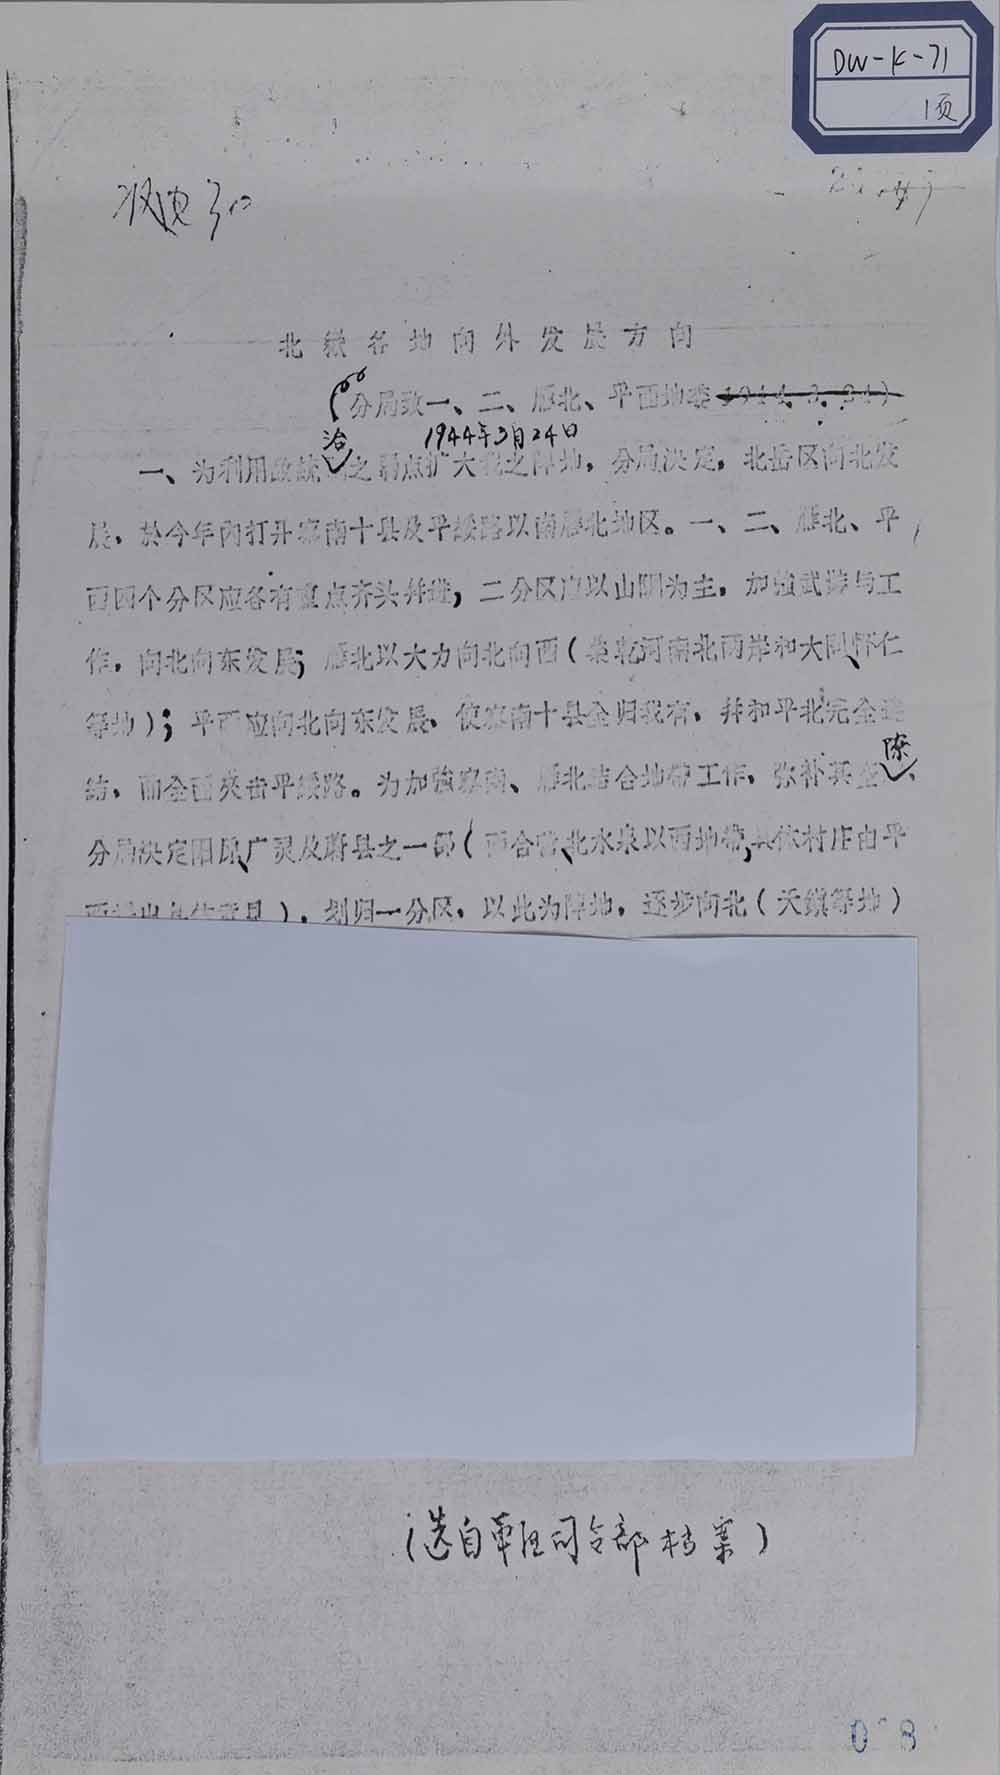 DW-K-71
1页
北岳各地向外发展方向
(分局致一、二、雁北、平西地委1944.3.24)
治 1944年3月24日
一、为利用敌统之弱点扩大我之阵地，分局决定，北岳区向北发
展，於今年内打开察南十县及平绥路以南雁北地区。一、二、雁北、平
西四个分区应各有重点齐头并进，二分区应以山阴为主，加强武装与工
作，向北向东发展；雁北以大力向北向西（桑乾河南北两岸和大同、怀仁
等地）；平西应向北向东发展、使察南十县全归我有，并和平北完全连
结，而全面夹击平绥路。为加强察南、雁北结合地带工作，
陈
分局决定阳原、广灵及蔚县之一部（西合营、北水泉以西地带，具体村庄由平
划归一分区，以此为阵地，逐步向北（天镇等地）
(选自军区司令部档案)
8